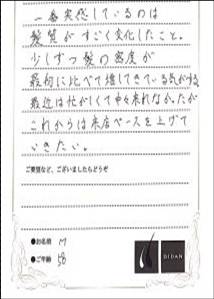 一番実感しているのは
髪質がすごく変化したこと。
少しずつ髪の密度が
最初に比べて増してきている気がする
最近は忙しくて中々来れなかったが
これからは来店ペースを上げて
いきたい。
ご要望など、ございましたらどうぞ
●お名前 M
●ご年齢 58
DIDAN